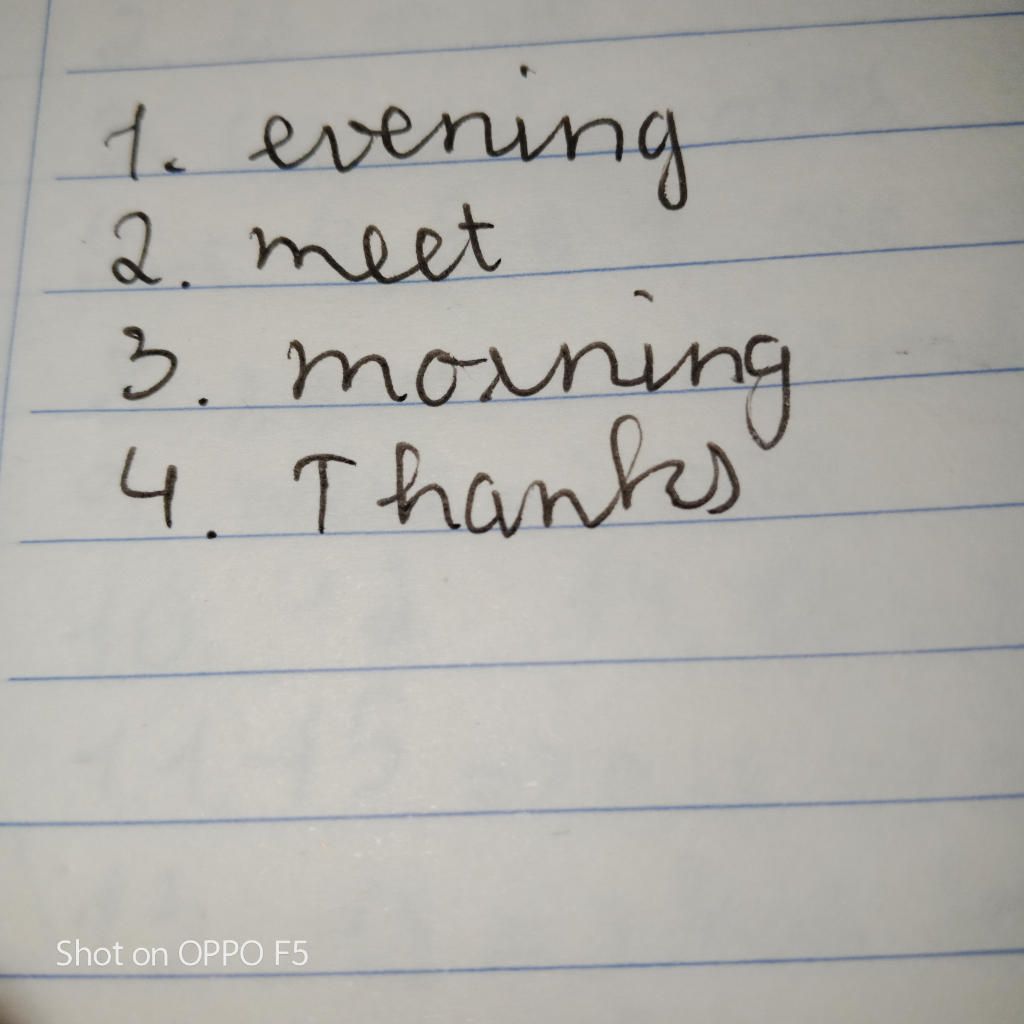 1. evening
2. meet
3. morning
4. Thanks
Shot on OPPO F5